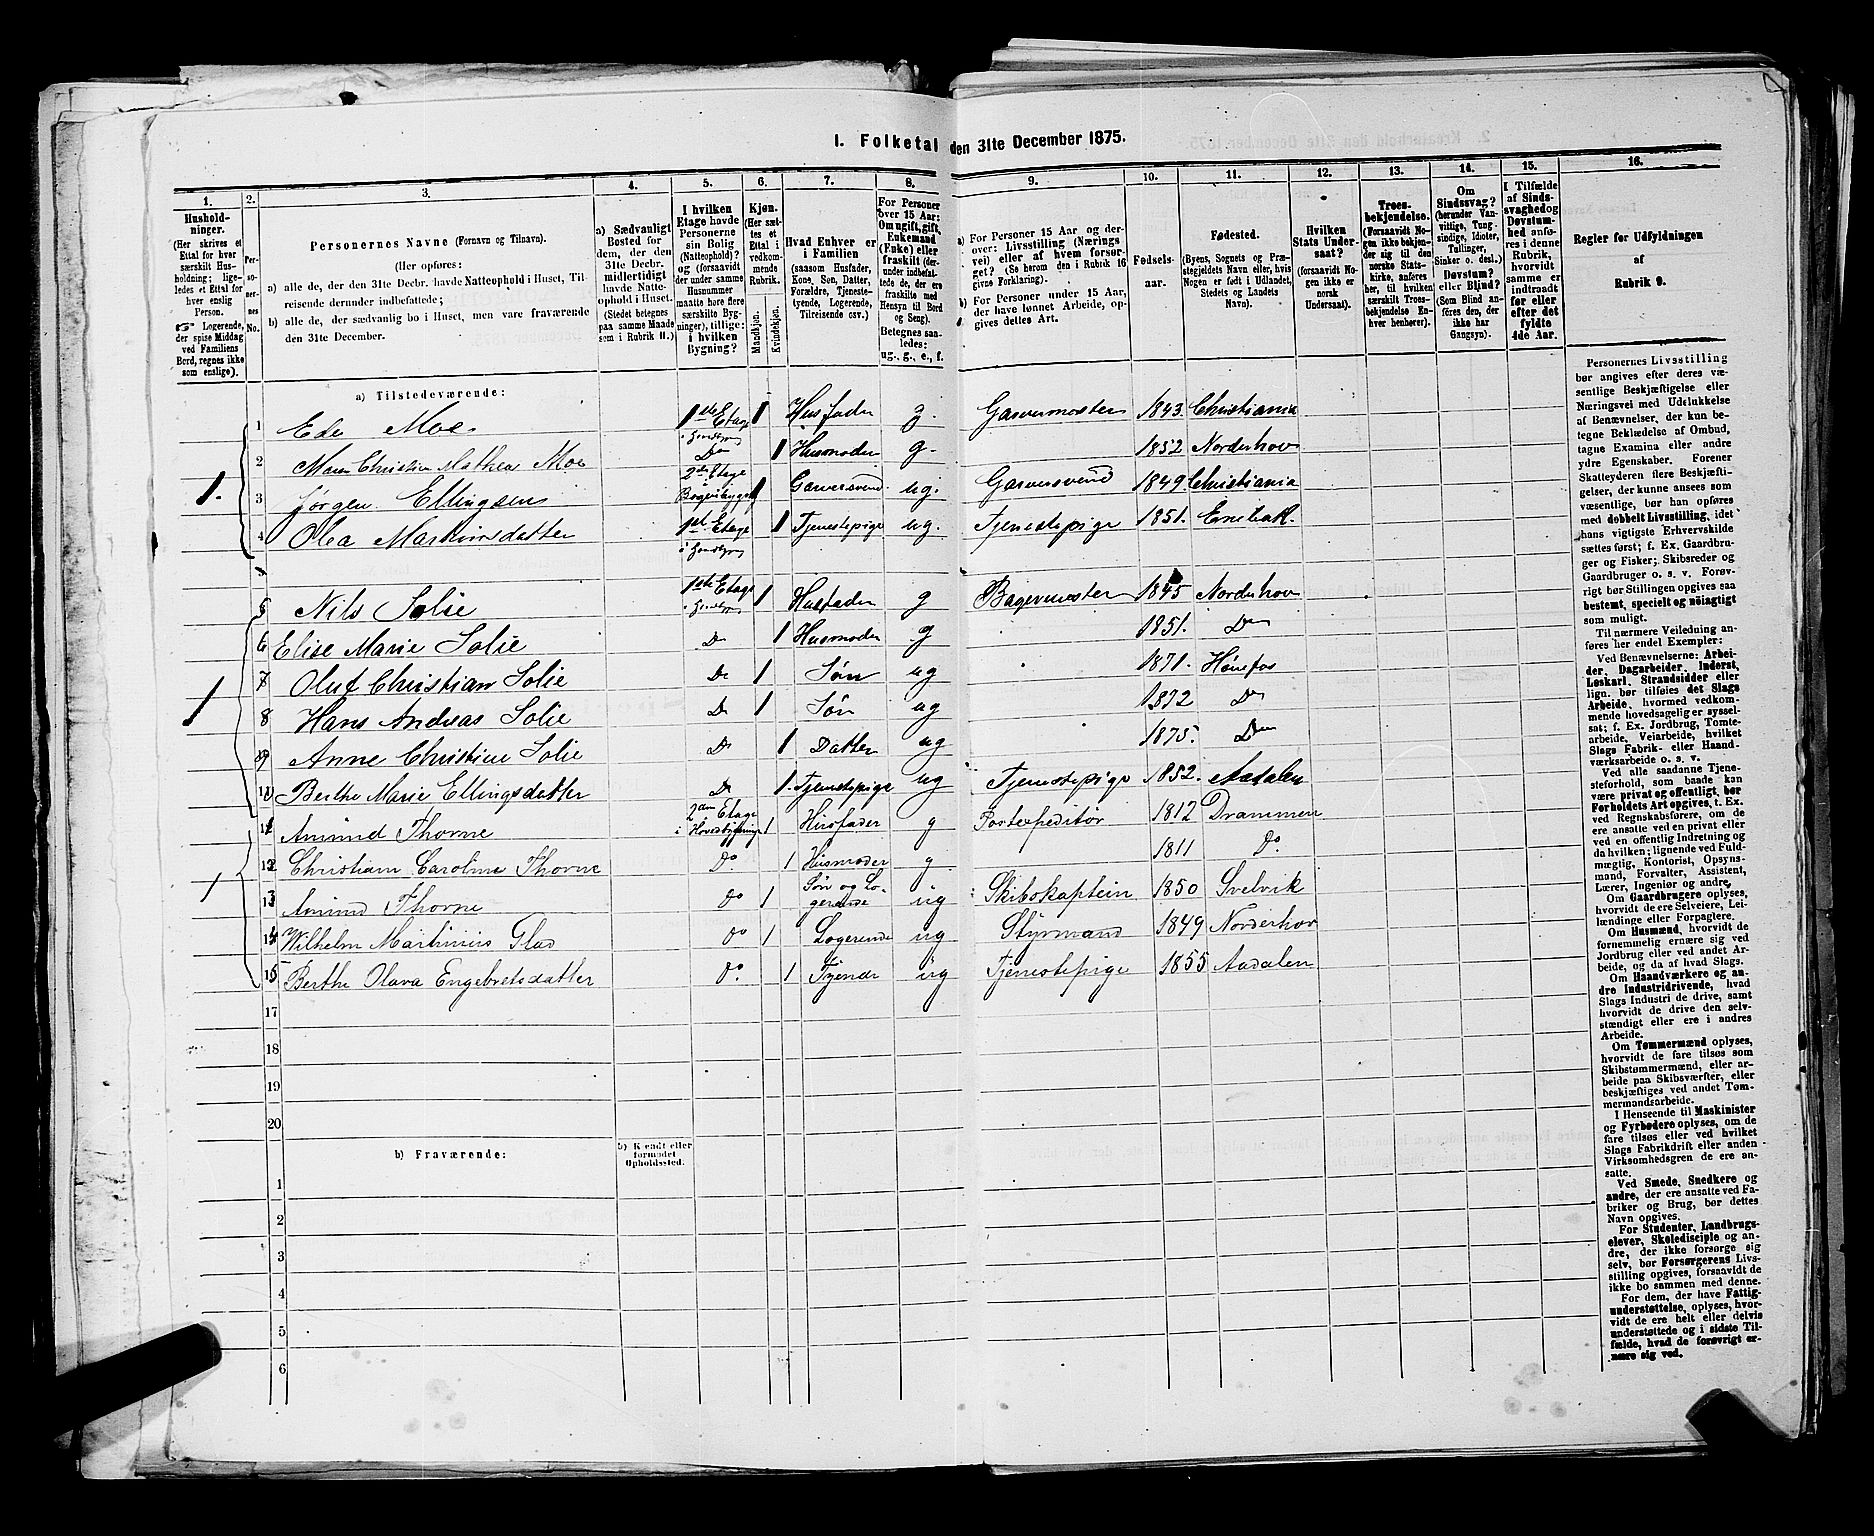 1. Folketal den 31te December 1875.
1. 2. 3. 4. 5. 6. 7. 8. 9. 10. 11. 12. 13. 14. 15. 16.
Hushold-
ninger.
(Her skrives et
Ettal for hver
særskilt Hus-
holdning; lige-
ledes et Ettal for
hver enslig
Person.
☞ Logerende,
der spise Middag
ved Familiens
Bord, regnes ikke
som enslige).
Per-
so-
ner-
nes
No.
Personernes Navne (Fornavn og Tilnavn).
(Her opføres:
a) alle de, der den 31te Decbr. havde Natteophold i Huset, Til-
reisende derunder indbefattede;
b) alle de, der sædvanlig bo i Huset, men vare fraværende
den 31te December.
a) Sædvanligt
Bosted for
dem, der den
31te Decbr.
midlertidigt
havde Natte-
ophold i Huset.
(Stedet betegnes
paa samme Maade
som i Rubrik 11.)
I hvilken
Etage havde
Personerne
sin Bolig
(Natteophold)?
og (forsaavidt
der under samme
Husnummer
maatte høre flere
særskilte Byg-
ninger), tillige:
i hvilken
Bygning?
Kjøn.
(Her sæt-
tes et
Ettal i
vedkom-
mende
Rubrik.
Mandkjøn.
Kvindekjøn.
Hvad Enhver er
i Familien
(saasom Husfader,
Kone, Søn, Datter,
Forældre, Tjeneste-
tyende, Logerende,
Tilreisende osv.)
For Personer
over 15 Aar:
Om ugift, gift,
Enkemand
(Enke) eller
fraskilt (der-
under indbefat-
tede de, der ere
fraskilte med
Hensyn til Bord
og Seng).
Betegnes saa-
ledes:
ug., g., e., f.
a) For Personer 15 Aar og der-
over: Livsstilling (Nærings-
vei) eller af hvem forsør-
get? (Se herom den i Rubrik 16
givne Forklaring).
b) For Personer under 15 Aar,
der have lønnet Arbeide, op-
gives dettes Art.
Fødsels-
aar.
Fødested.
(Byens, Sognets og Præ-
stegjeldets Navn eller, hvis
Nogen er født i Udlandet,
Stedets og Landets
Navn).
Hvilken
Stats Under-
saat?
(forsaavidt No-
gen ikke er
norsk
Undersaat).
Troes-
bekjendelse.
(Forsaavidt No-
gen ikke bekjen-
der sig til den
norske Stats-
kirke, anføres
her, til hvilken
særskilt Troes-
bekjendelse En-
hver henhører).
Om
Sindssvag?
(herunder Van-
vittige, Tung-
sindige, Idioter,
Tullinger,
Sinker o. desl.)
Døvstum?
eller Blind?
(Som Blind an-
føres den, der
ikke har
Gangsyn).
I Tilfælde
af Sinds-
svaghed og
Døvstum-
hed anfø-
res i denne
Rubrik,
hvorvidt
samme er
indtraadt
før eller
efter det
fyldte
4de Aar.
Regler for Udfyldningen
af
Rubrik 9.
a) Tilstedeværende:
1 Moe 1ste Etage 1 Husfader g. Garvermester 1843. Christiania
2 Maren Christine Mathea Moe Do 1 Husmoder g. 1852 Norderhov
1. 3 Jørgen Ellingsen 2den Etage 1 Garversvend ug. Garversvend 1849. Christiania
4 Olea Martinsdatter 1ste Etage 1 Tjenestepige ug. Tjenestepige 1851. Enebak.
5 Nils Solie 1ste Etage 1 Husfader g Bagermester 1845 Norderhov
6 Elise Marie Solie Do 1 Husmoder g 1851. Do
7 Oluf Christian Solie Do 1 Søn ug 1871. Hønefos
1 8 Hans Andreas Solie Do 1 Søn ug 1872 Do
9 Anne Christine Solie Do 1 Datter ug 1875. Do
Berthe Marie Ellingsdatter Do 1. Tjenestepige ug Tjenestepige 1852. Aadalen
Amund Thorne 2den Etage i Hovedbygning 1 Husfader g Postexpeditør 1812 Drammen
Christiane Caroline Thorne Do. 1 Husmoder g. 1811 Do.
1 Amund Thorne Do 1 Søn og Lo-
gerende ug Skibskaptein 1850 Svelvik
Wilhelm Martinius Glad Do 1 Logerende ug Styrmand 1849 Norderhov
Berthe Olava Engebretsdatter Do. 1 Tjende ug Tjenestepige 1855 Aadalen
17
18
19
20
b) Fraværende:
b) Kjendt eller
formodet
Opholdssted.
1
2
3
4
5
6
Personernes Livsstilling
bør angives efter deres væ-
sentlige Beskjæftigelse eller
Næringsvei med Udelukkelse
af Benævnelser, der kun be-
tegne Beklædelse af Ombud,
tagne Examina eller andre
ydre Egenskaber. Forener
Skatteyderen flere Beskjæfti-
gelser, der kunne ansees som
væsentlige, bør han opføres
med dobbelt Livsstilling, idet
hans vigtigste Erhvervskilde
sættes først; f. Ex. Gaardbru-
ger og Fisker; Skibsreder og
Gaardbruger o. s. v. Forøv-
rigt bør Stillingen opgives saa
bestemt, specielt og nøiagtigt
som muligt.
Til nærmere Veiledning an-
føres her endel Exempler:
Ved Benævnelserne: Arbei-
der, Dagarbeider, Inderst,
Løskarl, Strandsidder eller
lign. bør tilføies det Slags
Arbeide, hvormed vedkom-
mende hovedsagelig er syssel-
sat; f. Ex. Jordbrug, Tomte-
arbeide, Veiarbeide, hvilket
Slags Fabrik- eller Haand-
værksarbeide o. s. v.
Ved alle saadanne Tjene-
steforhold, som baade kan
være privat og offentligt, bør
Forholdets Art opgives, t. Ex.
ved Regnskabsførere, om de
ere ansatte ved en privat eller
en offentlig Indretning og
da hvilken; lignende ved Fuld-
mægtig, Kontorist, Opsyns-
mand, Forvalter, Assistent,
Lærer, Ingeniør og andre.
Om Gaardbrugere oplyses,
hvorvidt de ere Selveiere, Lei-
lændinge eller Forpagtere.
Om Husmænd, hvorvidt de
fornemmelig ernære sig ved
Jordbrug eller ved andet Ar-
beide, og da af hvad Slags.
Om Haandværkere og an-
dre Industridrivende, hvad
Slags Industri de drive, samt
hvorvidt de drive den selv-
stændigt eller ere i andres
Arbeide.
Om Tømmermænd oplyses,
hvorvidt de fare tilsøs som
Skibstømmermænd, eller ar-
beide paa Skibsværfter, eller
beskjæftiges ved andet Tøm-
mermandsarbeide.
I Henseende til Maskinister
og Fyrbødere oplyses, om de
fare tilsøs eller ved hvilket
Slags Fabrikdrift eller anden
Virksomhedsgren de ere an-
satte.
Ved Smede, Snedkere og
andre, der ere ansatte ved Fa-
briker og Brug, bør dettes
Navn opgives.
For Studenter, Landbrugs-
elever, Skoledisciple og an-
dre, der ikke forsørge sig
selv, bør Forsørgerens Livs-
stilling opgives, forsaavidt de
ikke bo sammen med denne.
For dem, der have Fattig-
understøttelse, oplyses, hvor-
vidt de ere helt eller delvis
understøttede og i sidste Til-
fælde, hvad de forøvrigt er-
nære sig ved.